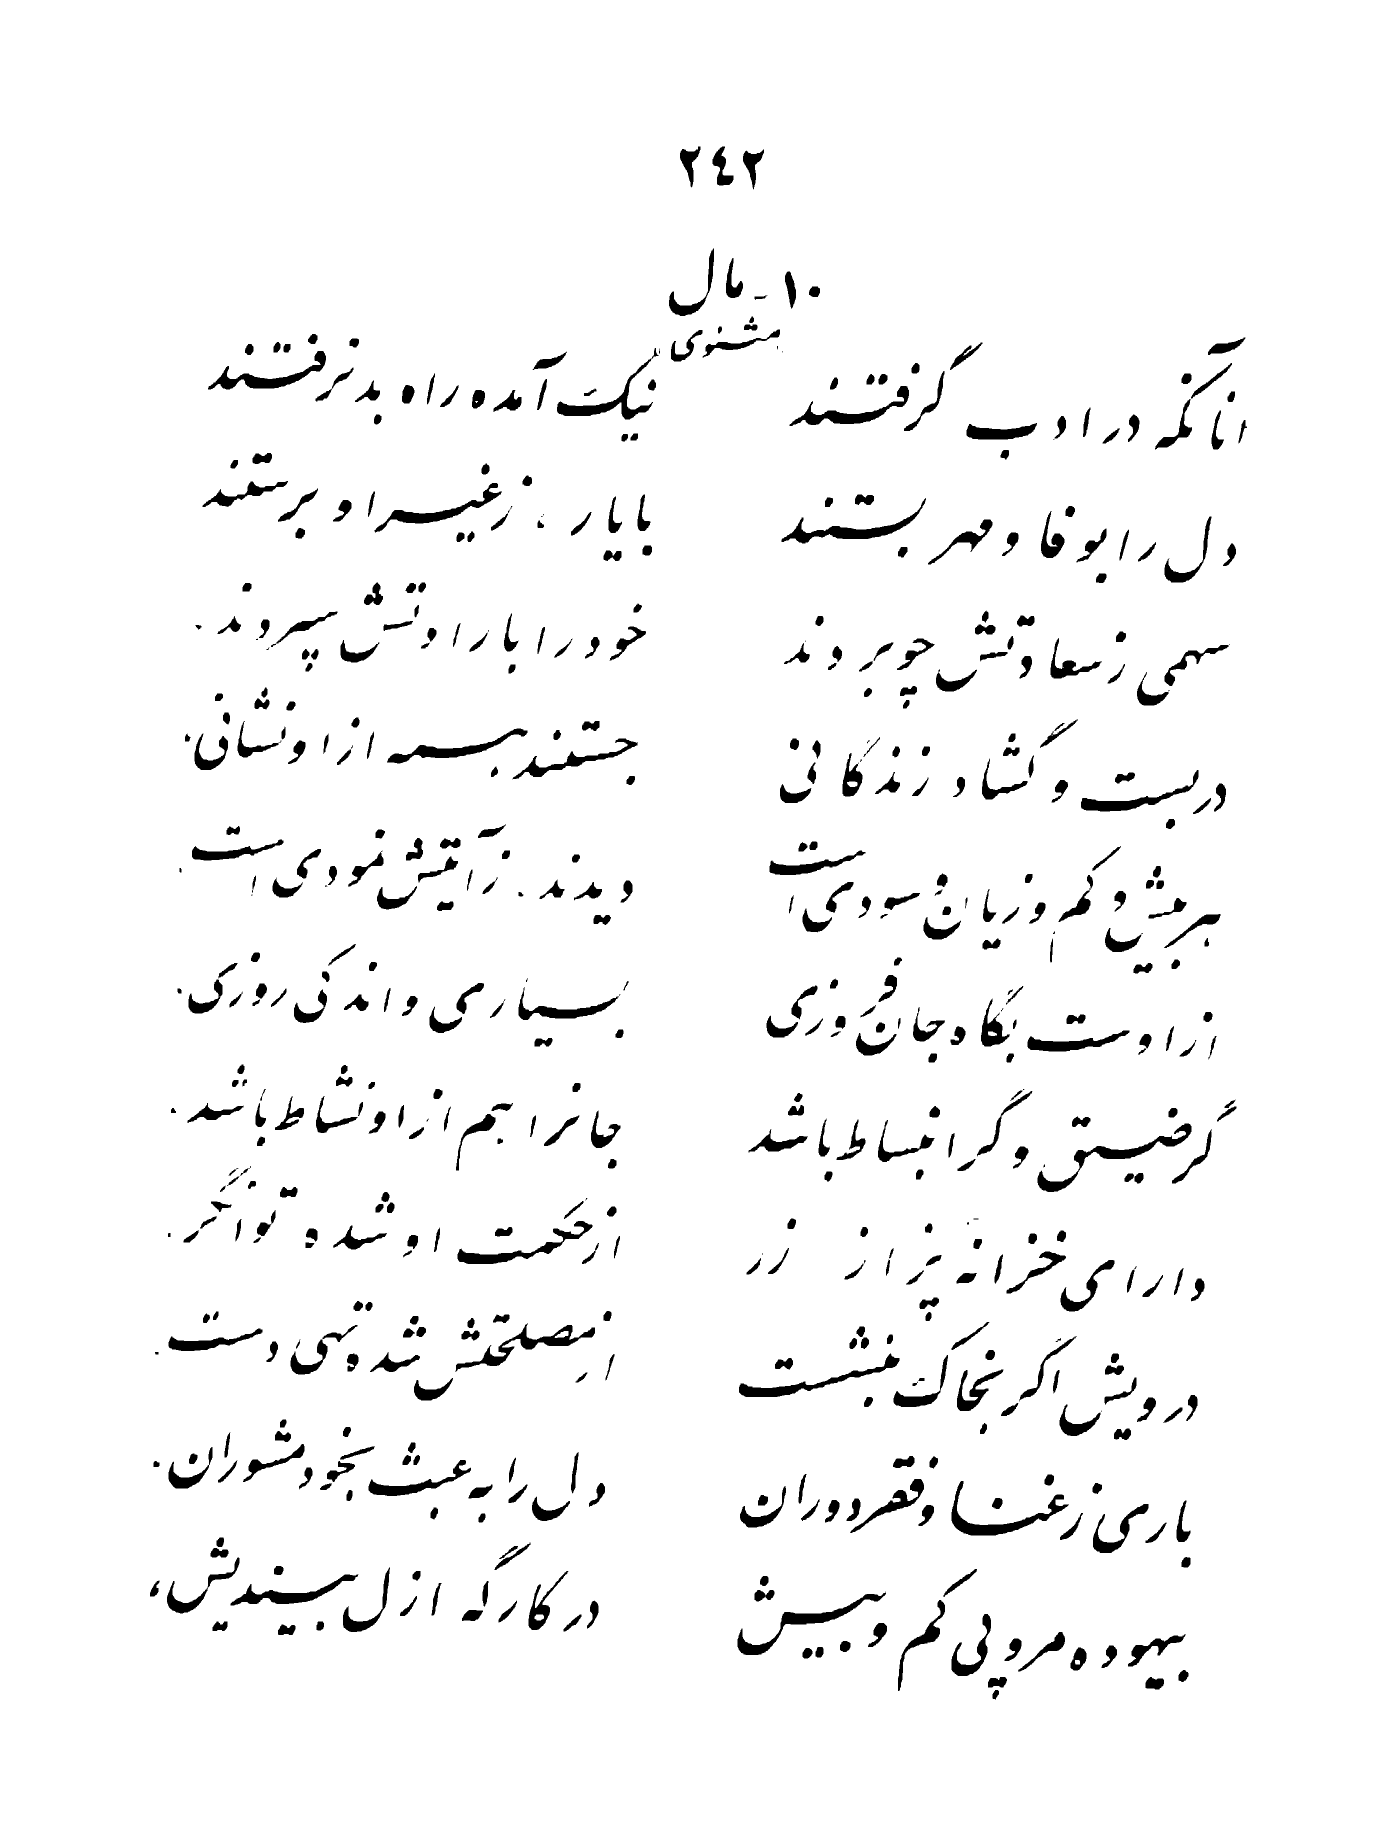 ٢٤٢
١٠ - مال
مثنوی
آنانکه در ادب گرفتند نیک آمده راه بد نرفتند
دل را بوفا و مهر بستند با یار ، ز غیر او برستند
سهمی ز سعادتش چو بردند خود را با رادتش سپردند .
در بست و گشاد زندگانی جستند همه از او نشانی .
هر بیش و کم و زیان و سودی است دیدند . ز آیتش نمودی است .
از اوست بگاه جان فروزی بسیاری و اندکی روزی .
گر ضیق و گر انبساط باشد جانرا هم از او نشاط باشد .
دارای خزانه پر از زر از حکمت او شده توانگر .
درویش اگر بخاک بنشست از مصلحتش شده تهی دست .
باری ز غنا و فقر دوران دل را به عبث بخود مشوران .
بیهوده مرو پی کم و بیش در کارگه ازل بیندیش ،